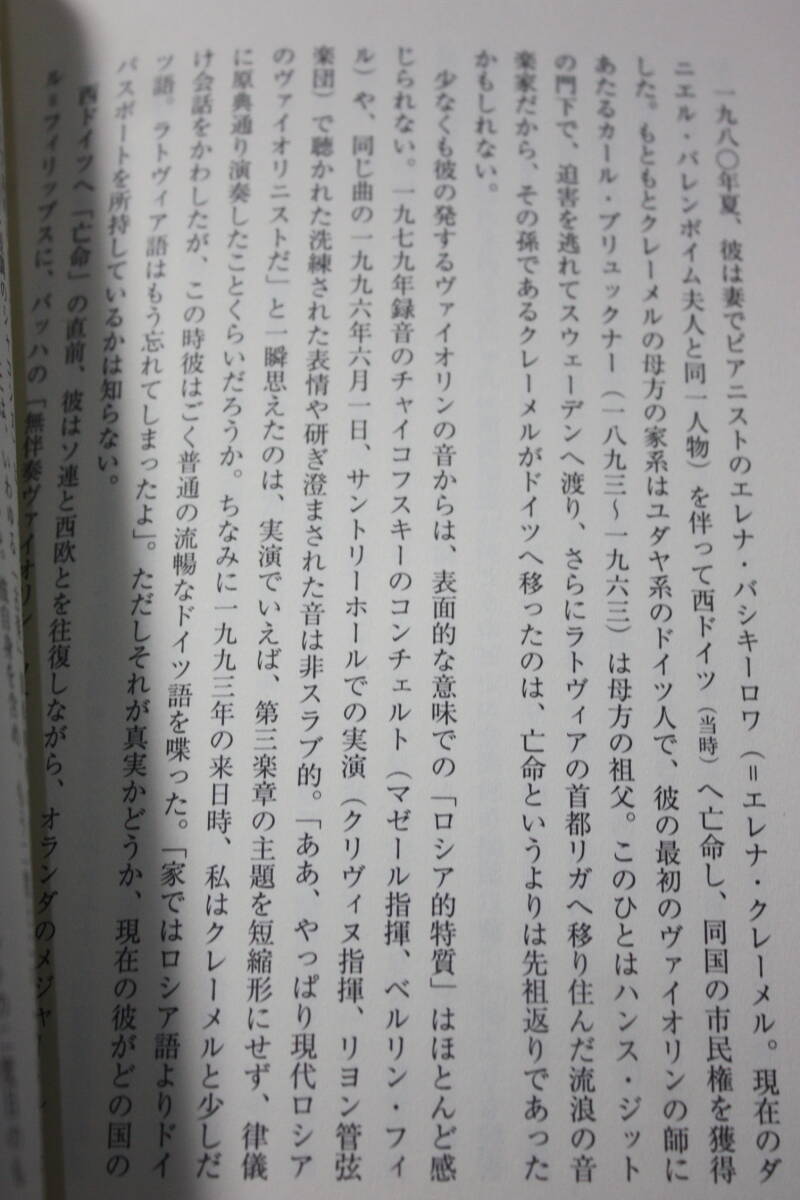 一九八〇年夏、彼は妻でピアニストのエレナ・バシキーロワ（＝エレナ・クレーメル。現在のダ
ニエル・バレンボイム夫人と同一人物）を伴って西ドイツ（当時）へ亡命し、同国の市民権を獲得
した。もともとクレーメルの母方の家系はユダヤ系のドイツ人で、彼の最初のヴァイオリンの師に
あたるカール・ブリュックナー（一八九三〜一九六三）は母方の祖父。このひとはハンス・ジット
の門下で、迫害を逃れてスウェーデンへ渡り、さらにラトヴィアの首都リガへ移り住んだ流浪の音
楽家だから、その孫であるクレーメルがドイツへ移ったのは、亡命というよりは先祖返りであった
かもしれない。
少なくも彼の発するヴァイオリンの音からは、表面的な意味での「ロシア的特質」はほとんど感
じられない。一九七九年録音のチャイコフスキーのコンチェルト（マゼール指揮、ベルリン・フィ
ル）や、同じ曲の一九九六年六月一日、サントリーホールでの実演（クリヴィヌ指揮、リヨン管弦
楽団）で聴かれた洗練された表情や研ぎ澄まされた音は非スラブ的。「ああ、やっぱり現代ロシア
のヴァイオリニストだ」と一瞬思えたのは、実演でいえば、第三楽章の主題を短縮形にせず、律儀
に原典通り演奏したことくらいだろうか。ちなみに一九九三年の来日時、私はクレーメルと少しだ
け会話をかわしたが、この時彼はごく普通の流暢なドイツ語を喋った。「家ではロシア語よりドイ
ツ語。ラトヴィア語はもう忘れてしまったよ」。ただしそれが真実かどうか、現在の彼がどの国の
パスポートを所持しているかは知らない。
西ドイツへ「亡命」の直前、彼はソ連と西欧とを往復しながら、オランダのメジャー
ル＝フィリップスに、バッハの「無伴奏ヴァイオリン